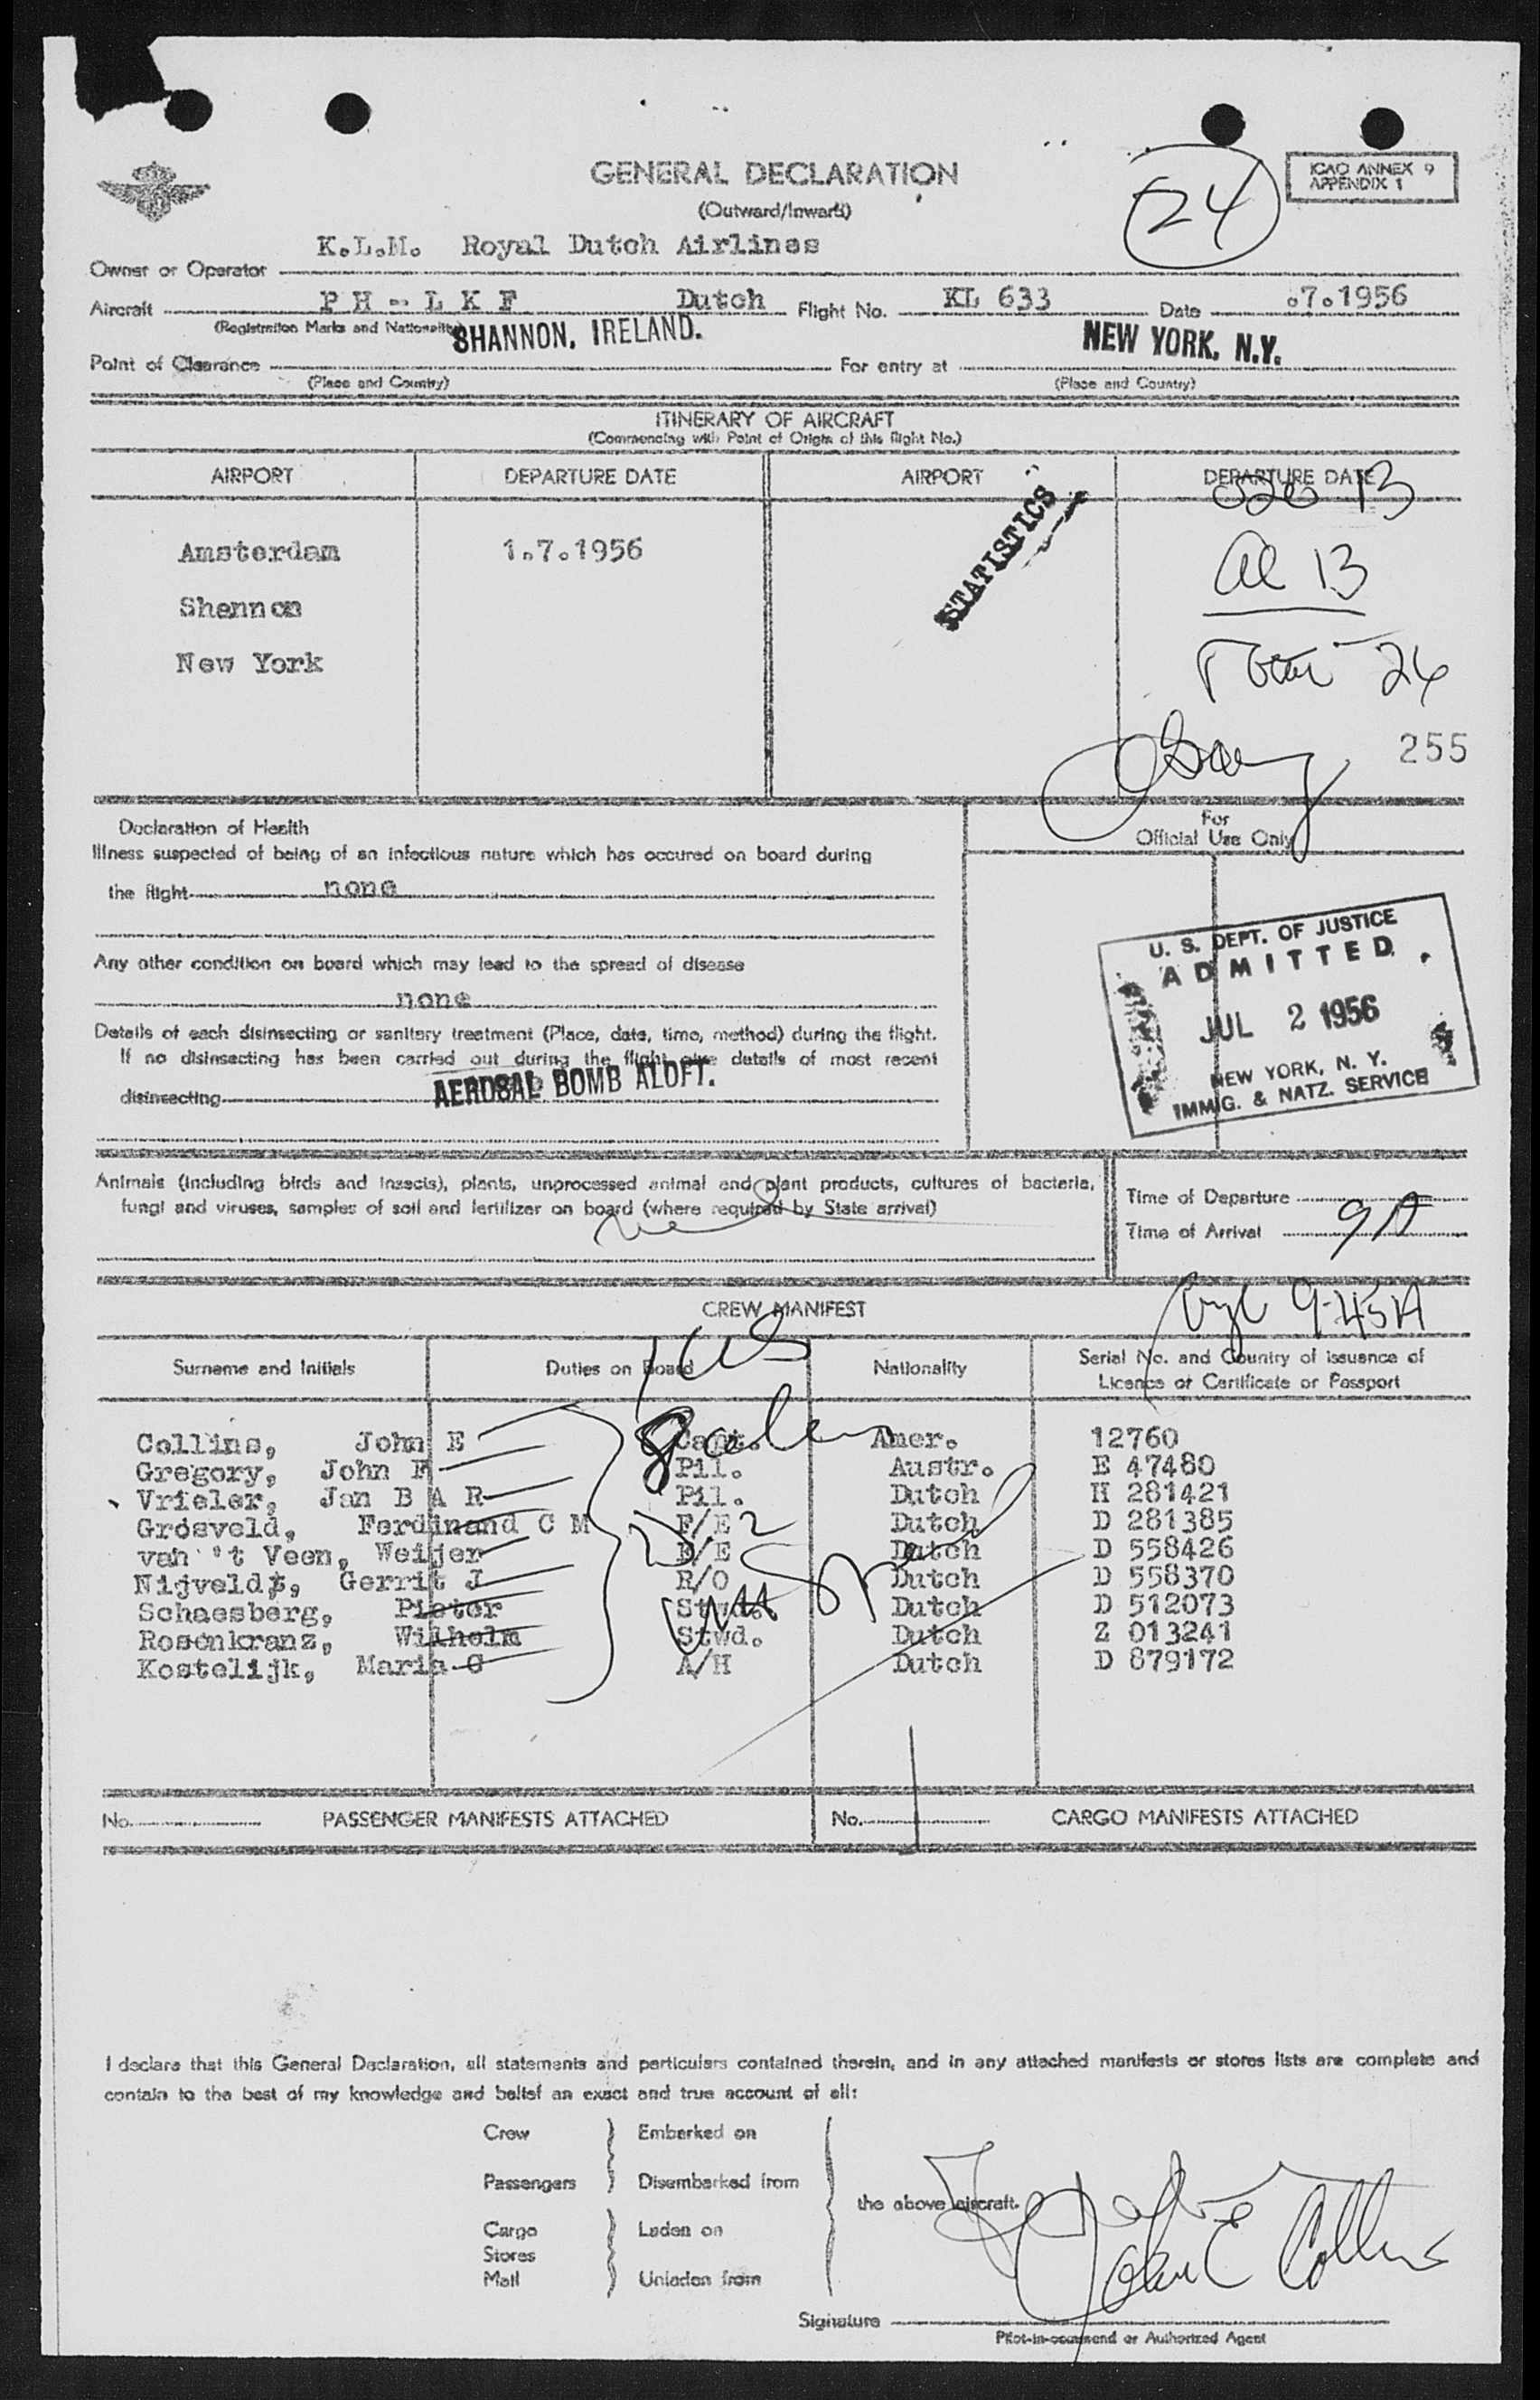 GENERAL DECLARATION
(Outward/Inward)
24
ICAO ANNEX 9
APPENDIX 1
Owner or Operator K.L.M. Royal Dutch Airlines
Aircraft PH-LKF Dutch Flight No. KL 633 Date .7.1956
(Registration Marks and Nationality)
Point of Clearance SHANNON, IRELAND. For entry at NEW YORK, N.Y.
(Place and Country) (Place and Country)
ITINERARY OF AIRCRAFT
(Commencing with Point of Origin of this flight No.)
AIRPORT DEPARTURE DATE AIRPORT DEPARTURE DATE
13
Amsterdam 1.7.1956
STATISTICS
13
Shannon
New York
255
Declaration of Health
Illness suspected of being of an infectious nature which has occured on board during
the flight none
For
Official Use Only
Any other condition on board which may lead to the spread of disease
none
Details of each disinsecting or sanitary treatment (Place, date, time, method) during the flight.
If no disinsecting has been carried out during the flight give details of most recent
disinsecting AEROSAL BOMB ALOFT.
U. S. DEPT. OF JUSTICE
ADMITTED
JUL 2 1956
NEW YORK, N. Y.
IMMIG. & NATZ. SERVICE
Animals (including birds and insects), plants, unprocessed animal and plant products, cultures of bacteria,
fungi and viruses, samples of soil and fertilizer on board (where required by State arrival)
Time of Departure
Time of Arrival 9A
9-45A
CREW MANIFEST
Surname and Initials Duties on Board Nationality Serial No. and Country of issuance of
Licence of Certificate or Passport
Collins, John E Capt. Amer. 12760
Gregory, John F Pil. Austr. E 47480
Vrieler, Jan B A R Pil. Dutch H 281421
Grosveld, Ferdinand C M F/E Dutch D 281385
van 't Veen, Weijer F/E Dutch D 558426
Nijveldt, Gerrit J R/O Dutch D 558370
Schaesberg, Pieter Stwd. Dutch D 512073
Rosenkranz, Wilhelm Stwd. Dutch Z 013241
Kostelijk, Maria C A/H Dutch D 879172
No. PASSENGER MANIFESTS ATTACHED No. 1 CARGO MANIFESTS ATTACHED
I declare that this General Declaration, all statements and particulars contained therein, and in any attached manifests or stores lists are complete and
contain to the best of my knowledge and belief an exact and true account of all:
Crew Embarked on
Passengers Disembarked from
the above aircraft.
Cargo Laden on
Stores
Mail Unladen from
John E Collins
Signature
Pilot-in-command or Authorized Agent